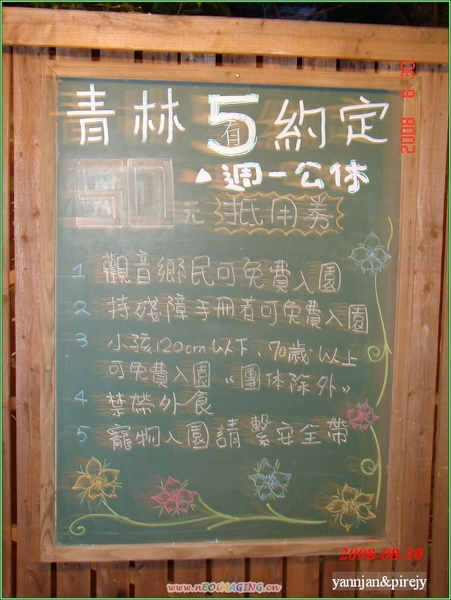 青林5約定
有
▲週一公休
50元 抵用券
1 觀音鄉民可免費入園
2 持殘障手冊者可免費入園
3 小孩120cm以下、70歲以上
可免費入園 "團體除外"
4 禁帶外食
5 寵物入園請繫安全帶
2008 8 30
2008-08-30
yannjan&pirejy
www.nEOIMAGING.cn